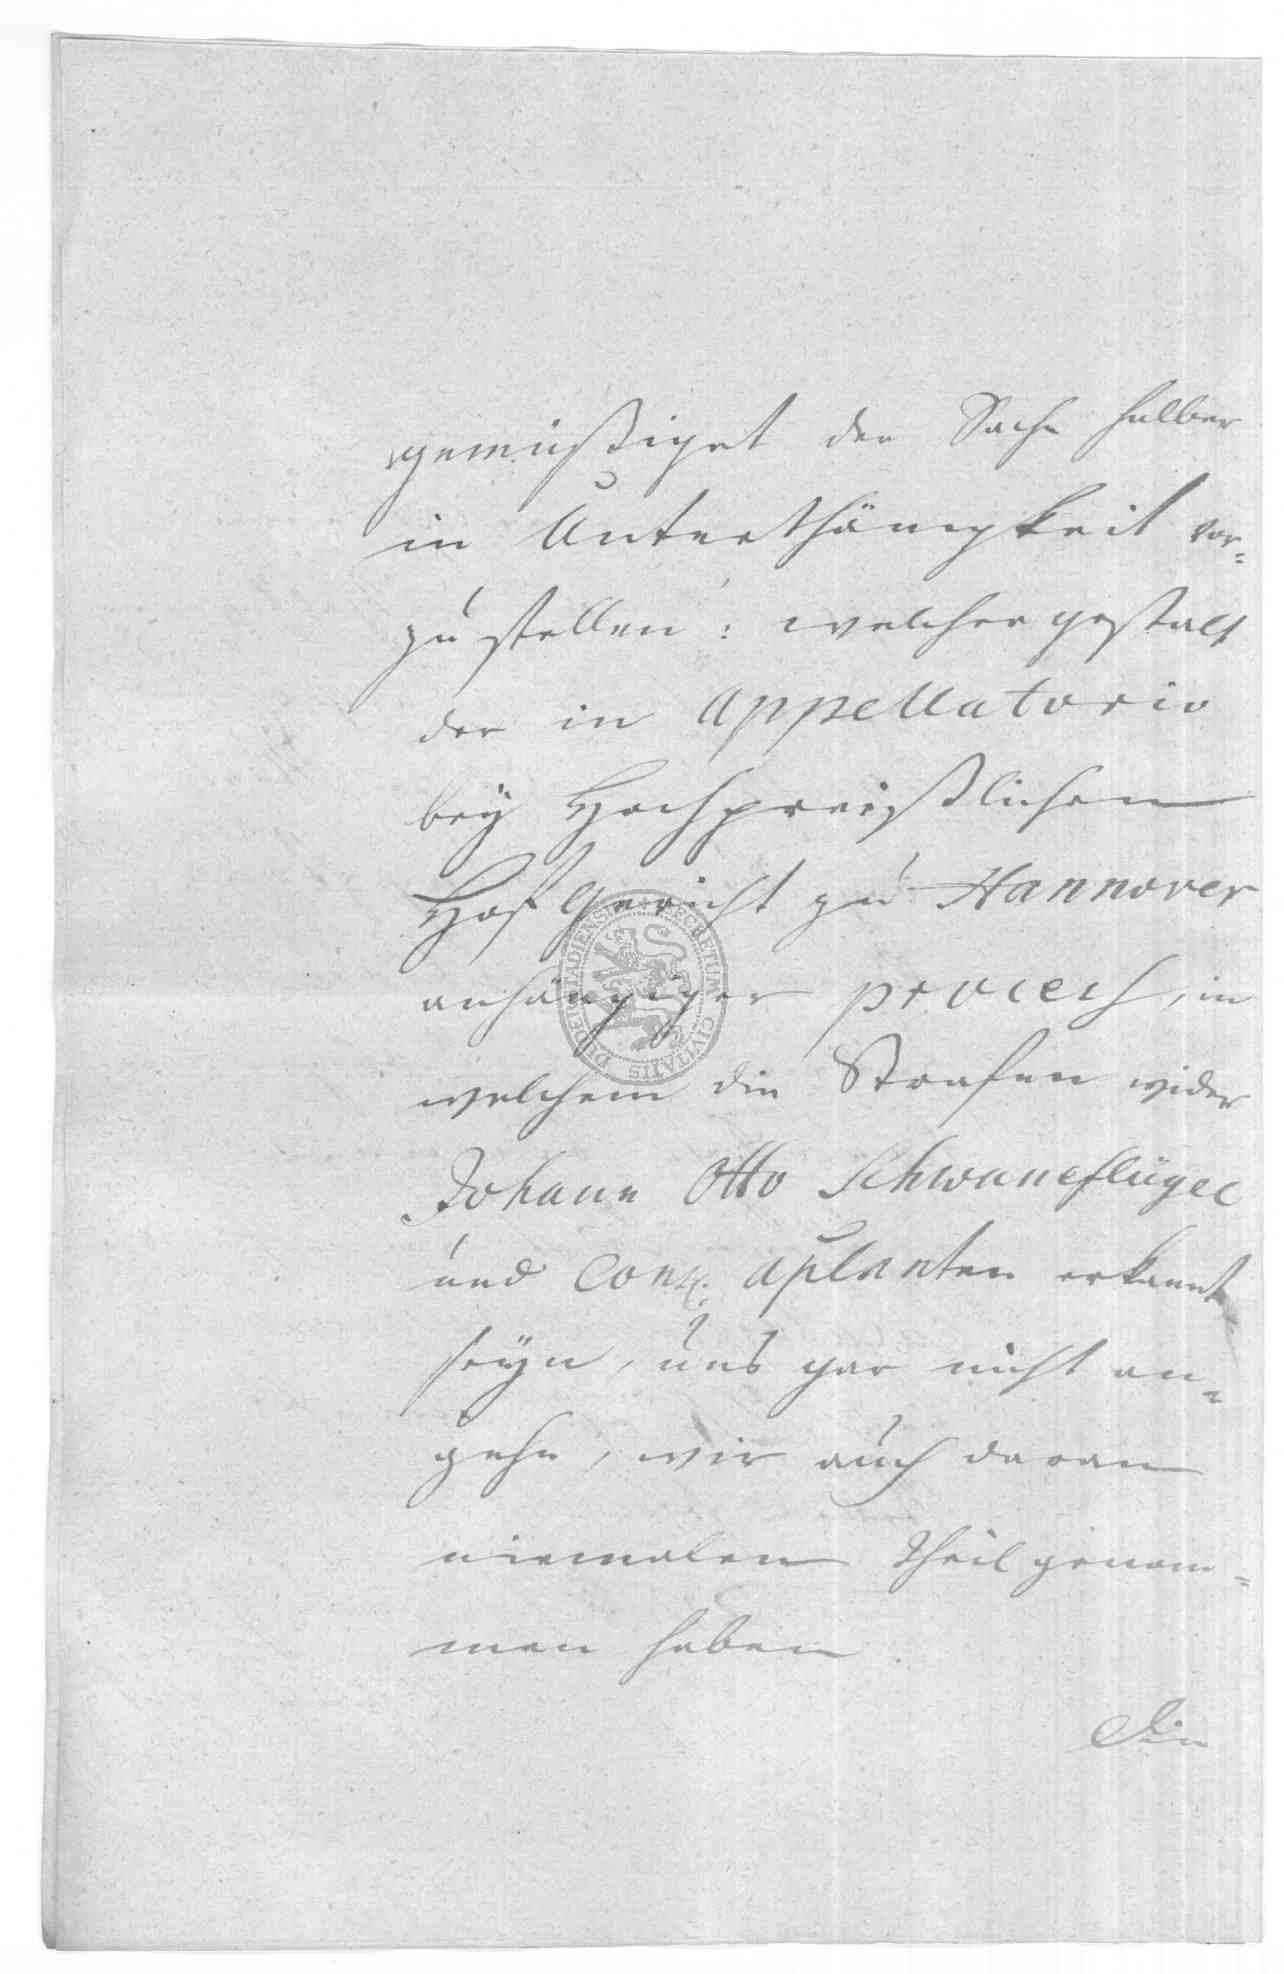 gemüßiget der Sache halber
in Unterthänigkeit vor=
zu stellen: welchergestalt
der in Appellatorio
bey Hochpreißlichem
Hof Gericht zu Hannover
anhängiger process, in
welchem die Strafen wider
Johann Otto Schwaneflügel
und Cons. aplanten erkannt
seyn, uns gar nicht an=
gehe, wir auch daran
niemalen theil genom=
men haben
Die
SECRETUM CIVITATIS DUDERSTADIENSIS